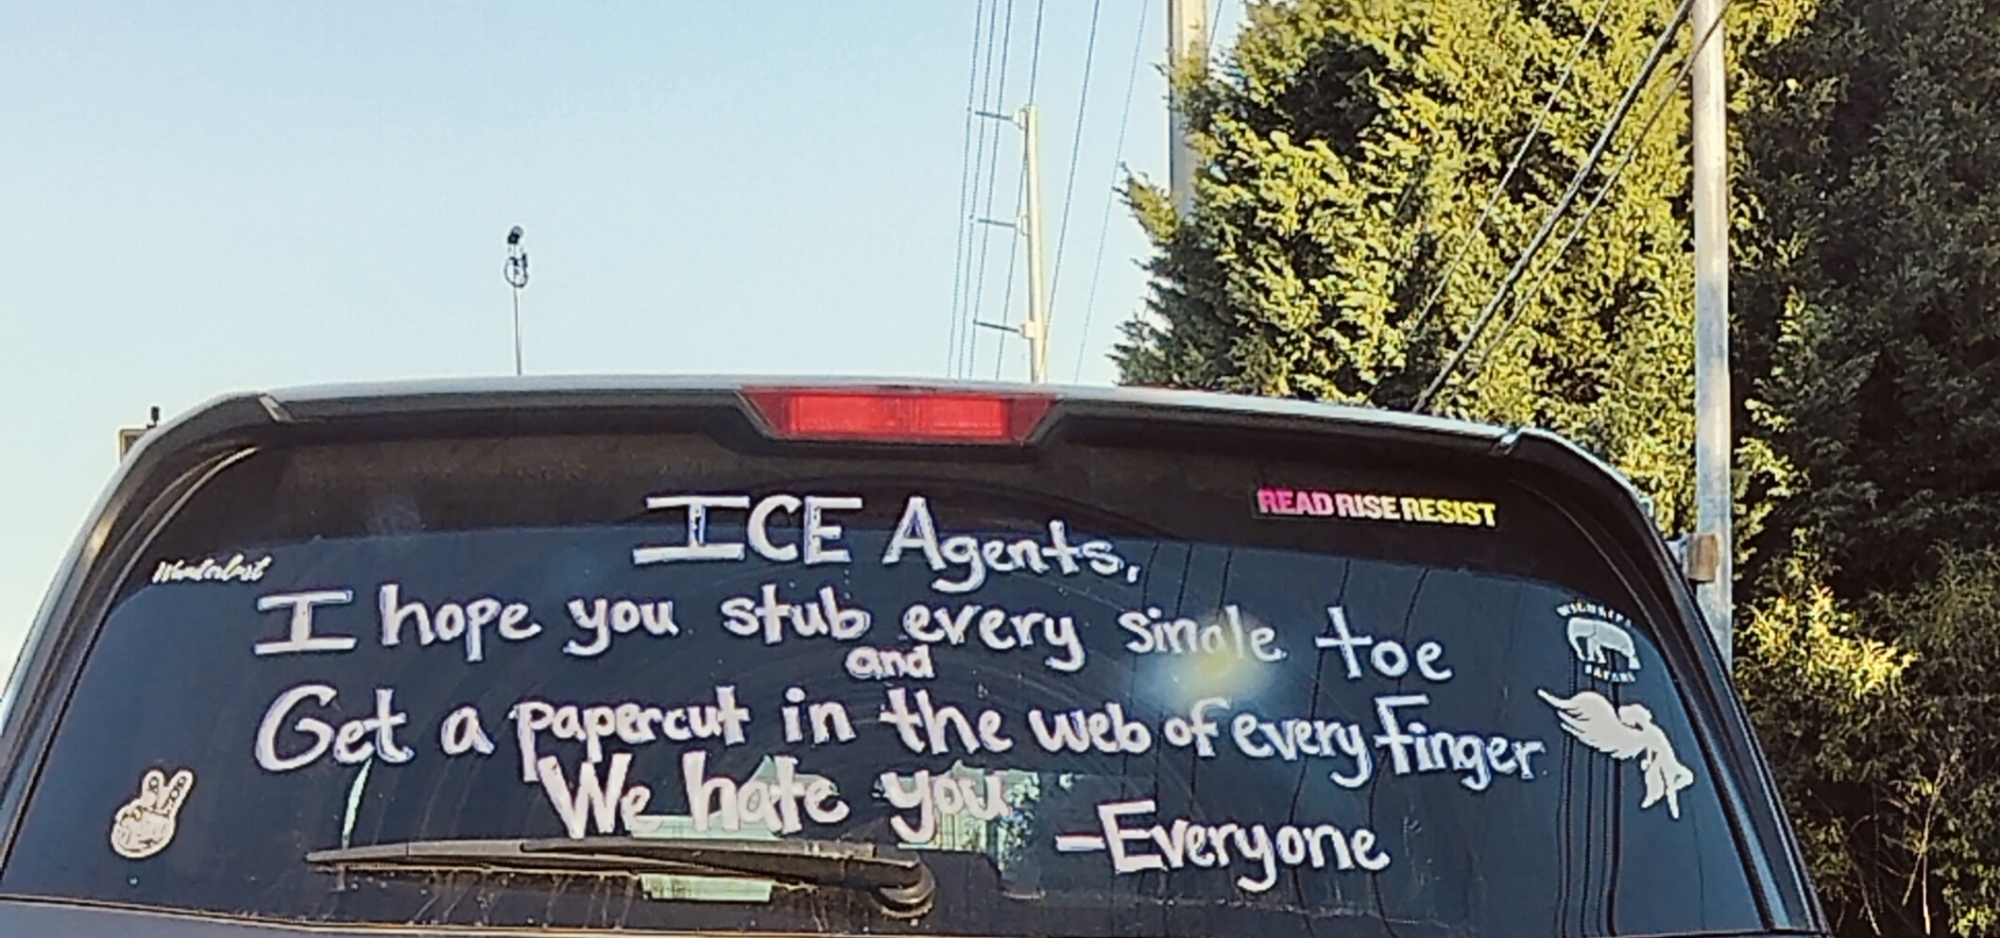 READ RISE RESIST
Wanderlust
ICE Agents,
I hope you stub every single toe
and
Get a papercut in the web of every Finger
We hate you
-Everyone
WILDLIFE
SAFARI